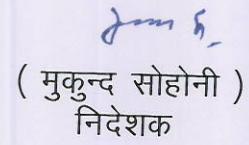 ( मुकुन्द सोहोनी )
निदेशक